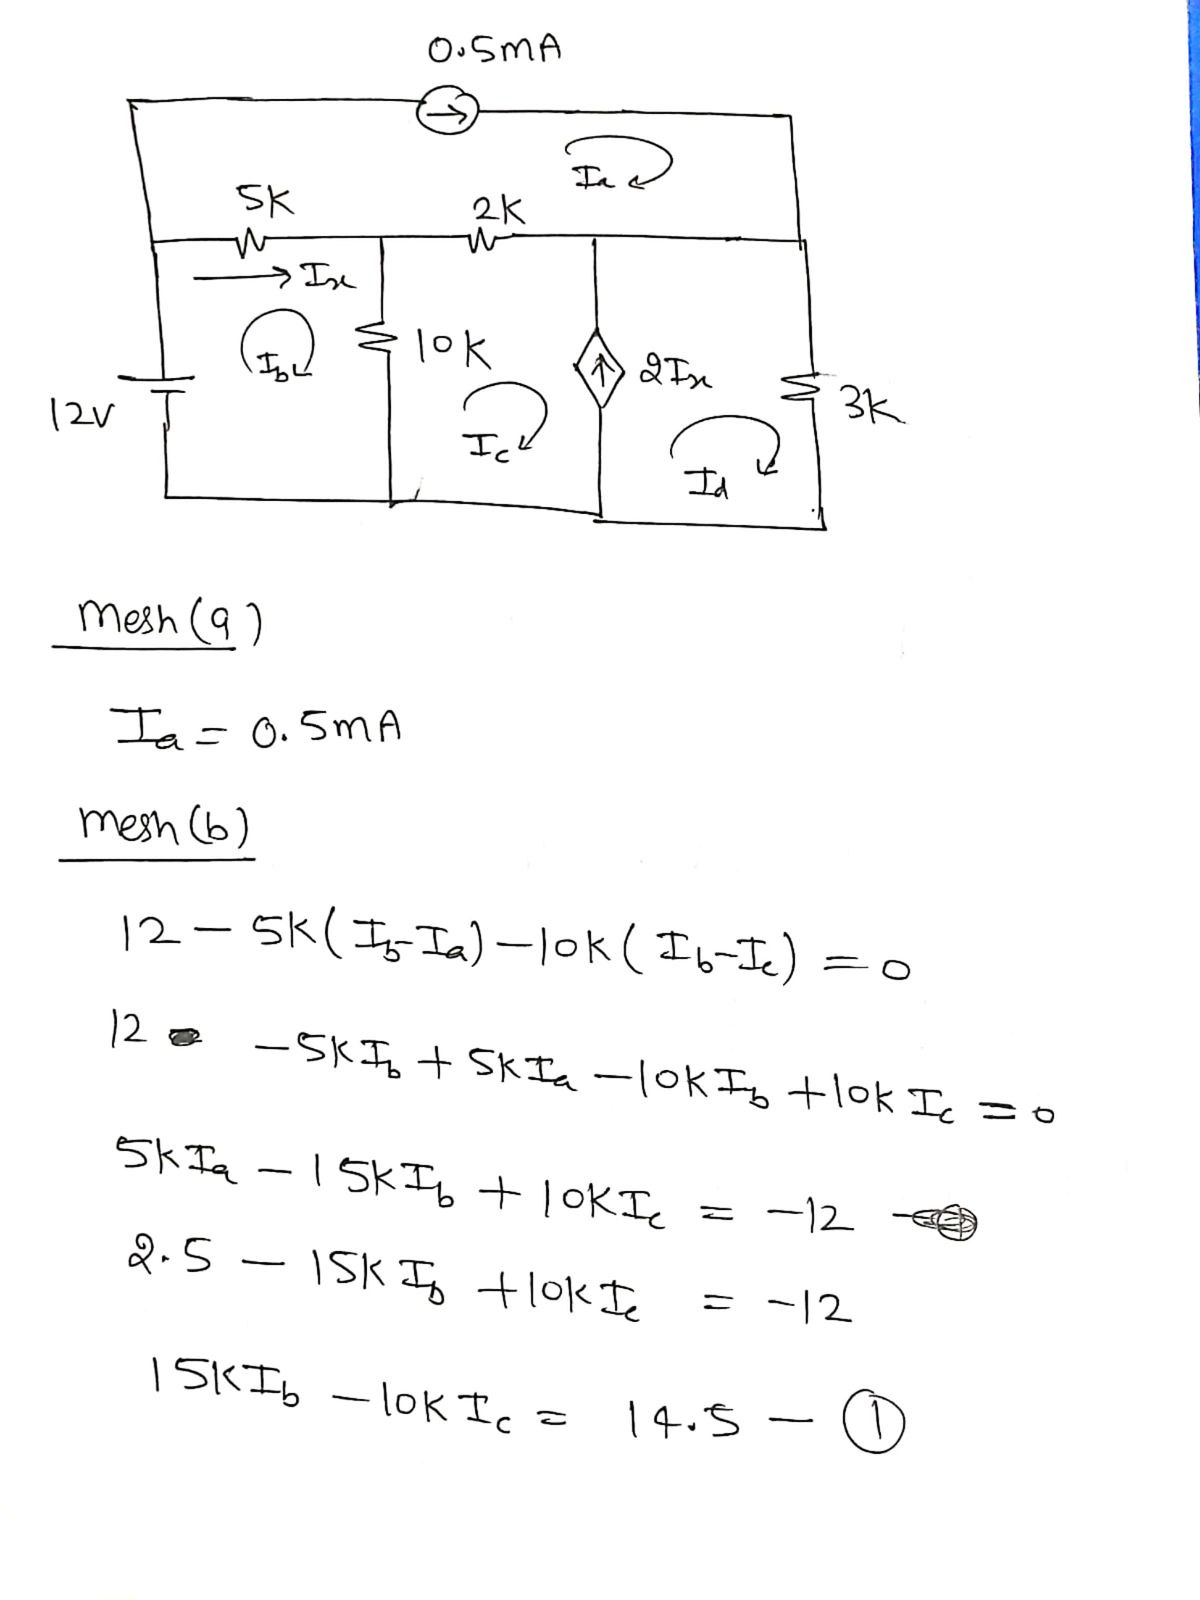 0.5mA
Ia
5K
2K
Ix
Ib
10K
2Ix
12V
3K
Ic
Id
Mesh (a)
Ia = 0.5mA
Mesh (b)
12 - 5K(Ib-Ia) - 10K(Ib-Ic) = 0
12 -5KIb + 5KIa - 10KIb + 10K Ic = 0
5KIa - 15KIb + 10KIc = -12
2.5 - 15KIb + 10KIc = -12
15KIb - 10KIc = 14.5 - ①